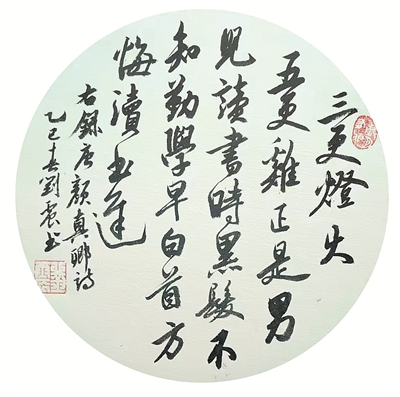 三更燈火
五更雞正是男
兒讀書時黑髮不
知勤學早白首方
悔讀书遲
右錄唐顏真卿詩
乙巳春劉震书